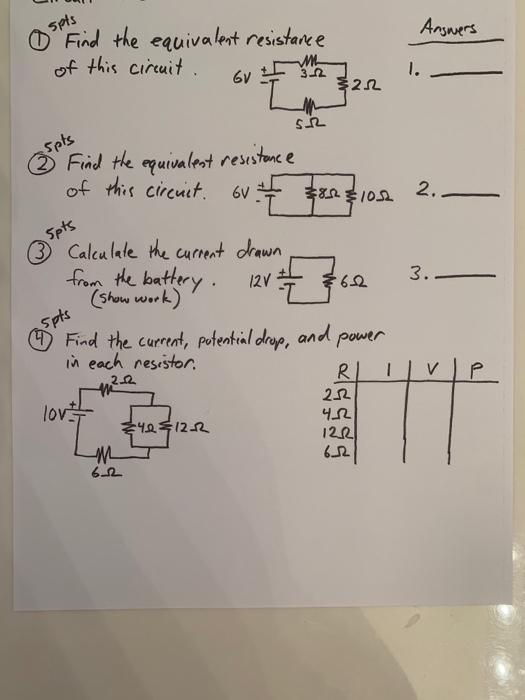 5pts
Answers
① Find the equivalent resistance
of this circuit.
6V + - 3Ω 2Ω 5Ω
1.
5pts
② Find the equivalent resistance
of this circuit.
6V + - 8Ω 10Ω
2.
5pts
③ Calculate the current drawn
from the battery.
(show work)
12V + - 6Ω
3.
5pts
④ Find the current, potential drop, and power
in each resistor.
2Ω
10V + -
4Ω 12Ω
6Ω
R I V P
2Ω
4Ω
12Ω
6Ω